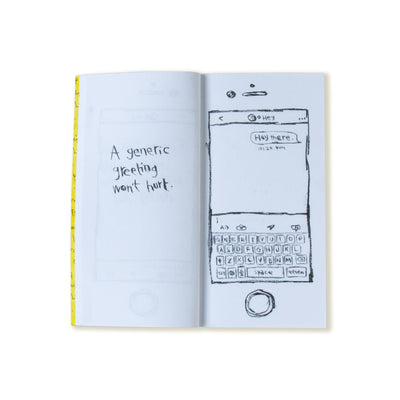 A generic
greeting
won't hurt.
Hey
Hey there.
space
return